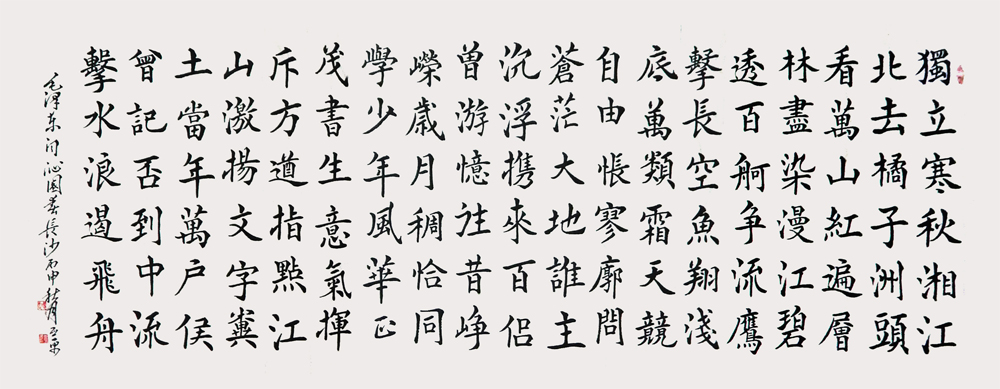 獨立寒秋湘江
北去橘子洲頭
看萬山紅遍層
林盡染漫江碧
透百舸争流鷹
擊長空魚翔淺
底萬類霜天競
自由悵寥廓問
蒼茫大地誰主
沉浮携來百侣
曾游憶往昔崢
嶸歲月稠恰同
學少年風華正
茂書生意氣揮
斥方道指點江
山激揚文字糞
土當年萬户侯
曾記否到中流
擊水浪遏飛舟
毛澤东词沁園春長沙丙申秋月